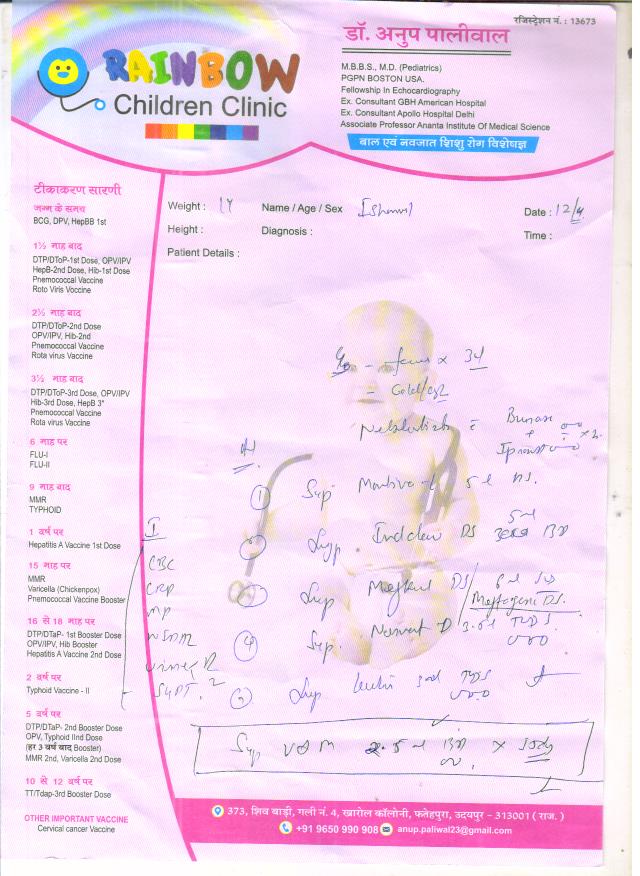 रजिस्ट्रेशन नं. : 13673
डॉ. अनुप पालीवाल
RAINBOW
Children Clinic
M.B.B.S., M.D. (Pediatrics)
PGPN BOSTON USA.
Fellowship In Echocardiography
Ex. Consultant GBH American Hospital
Ex. Consultant Apollo Hospital Delhi
Associate Professor Ananta Institute Of Medical Science
बाल एवं नवजात शिशु रोग विशेषज्ञ
Weight : 14 Name / Age / Sex Date : 12/4
Height : Diagnosis : Time :
Patient Details :
टीकाकरण सारणी
जन्म के समय
BCG, DPV, HepBB 1st
1½ माह बाद
DTP/DToP-1st Dose, OPV/IPV
HepB-2nd Dose, Hib-1st Dose
Pnemococcal Vaccine
Roto Viris Voccine
2½ माह बाद
DTP/DToP-2nd Dose
OPV/IPV, Hib-2nd
Pnemococcal Vaccine
Rota virus Vaccine
3½ माह बाद
DTP/DToP-3rd Dose, OPV/IPV
Hib-3rd Dose, HepB 3*
Pnemococcal Vaccine
Rota virus Vaccine
6 माह पर
FLU-I
FLU-II
9 माह बाद
MMR
TYPHOID
1 वर्ष पर
Hepatitis A Vaccine 1st Dose
15 माह पर
MMR
Varicella (Chickenpox)
Pnemococcal Vaccine Booster
16 से 18 माह पर
DTP/DTaP- 1st Booster Dose
OPV/IPV, Hib Booster
Hepatitis A Vaccine 2nd Dose
2 वर्ष पर
Typhoid Vaccine - II
5 वर्ष पर
DTP/DTaP- 2nd Booster Dose
OPV, Typhoid IInd Dose
(हर 3 वर्ष बाद Booster)
MMR 2nd, Varicella 2nd Dose
10 से 12 वर्ष पर
TT/Tdap-3rd Booster Dose
OTHER IMPORTANT VACCINE
Cervical cancer Vaccine
fever x 3d
Cold/
1 Syp 5 ml
2 Syp DS 5 ml BD
3 Syp DS/ 6 ml
DS.
4 Syp. D 3.5 ml TDS
Syp 3 ml TDS
I
CBC
CRP
MP
Urine R
SGPT
Syp 2.5 ml BD x 10 dy
373, शिव बाड़ी, गली नं. 4, खारोल कॉलोनी, फतेहपुरा, उदयपुर – 313001 ( राज. )
+91 9650 990 908 anup.paliwal23@gmail.com